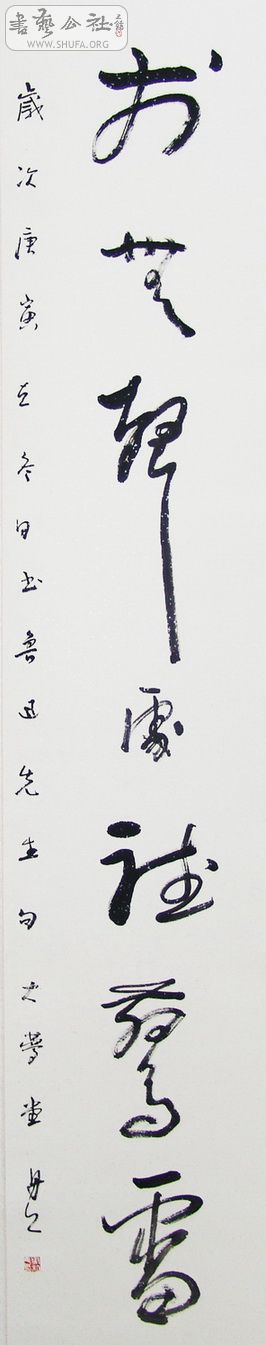 書藝公社
WWW.SHUFA.ORG
於無聲處聽驚雷
歲次庚寅立冬日書魯迅先生句大堂